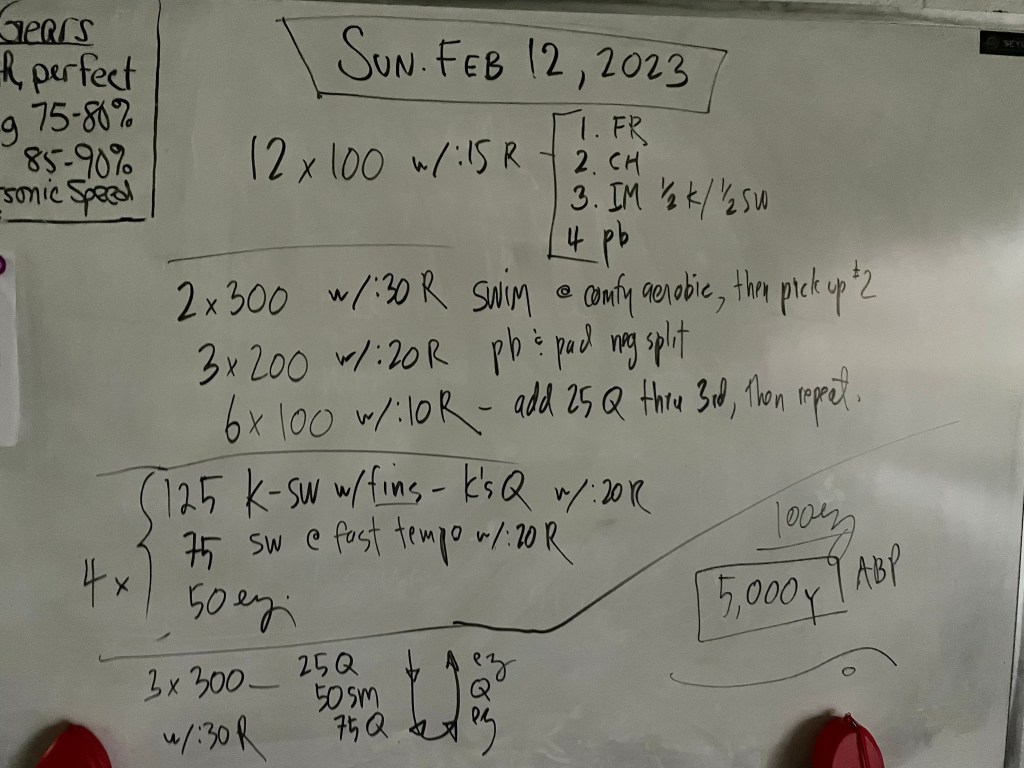 Gears
perfect
75-80%
85-90%
sonic Speed
SUN. FEB 12, 2023
12 x 100 w/:15 R
1. FR
2. CH
3. IM ½ K/½ SW
4 pb
2 x 300 w/:30 R SWIM @ comfy aerobic, then pick up #2
3 x 200 w/:20 R pb & pad neg split
6 x 100 w/:10 R - add 25 Q thru 3rd, then repeat.
4 x
125 K-SW w/fins - K's Q w/:20R
75 SW @ fast tempo w/:20R
50 ez.
3 x 300 — 25 Q
50 sm
w/:30 R 75 Q
ez
Q
ez
100 ez
5,000y ABP